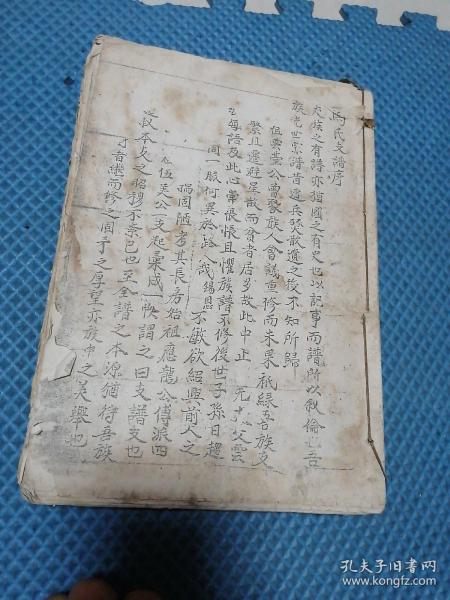 馮氏支譜序
夫族之有譜亦猶國之有史也史以記事而譜所以敘倫也吾
族先世宗譜昔遭兵燹散遺之後不知所歸
伯典堂公曾聚族人會議重修而未果祇緣吾族支
繁且遷避星散而貧者居多故此中止 元 父雲
公每語及此心常悵悵且懼族譜不修後世子孫日趨
同一脈何異於路人哉錫恩 不敏欲紹興前人之
搞固陋考其長房始祖應龍公傳派四
伍美公一支起彙成一帙謂之曰支譜支也
以叙本支之昭穆不紊已也至全譜之本源猶待吾族
才者繼而修之固予之厚望亦族中之美舉也
孔夫子旧书网
www.kongfz.com